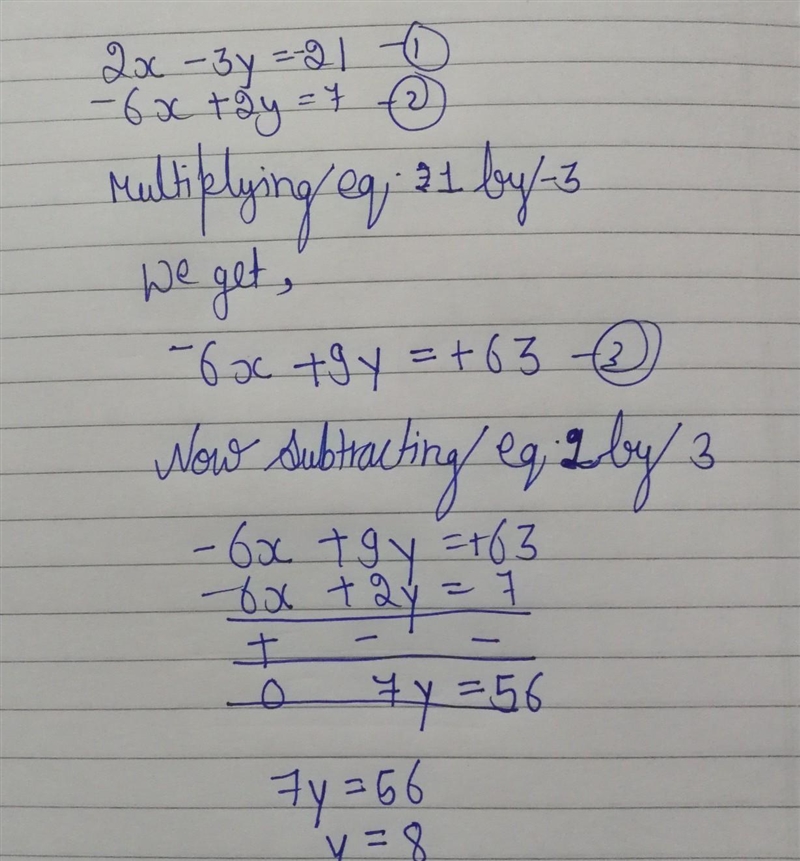 2x - 3y = -21 - ①
-6x + 2y = 7 - ②
Multiplying eq. 1 by -3
We get,
-6x + 9y = +63 - ③
Now subtracting eq. 2 by 3
-6x + 9y = +63
-6x + 2y = 7
+ - -
0 7y = 56
7y = 56
y = 8